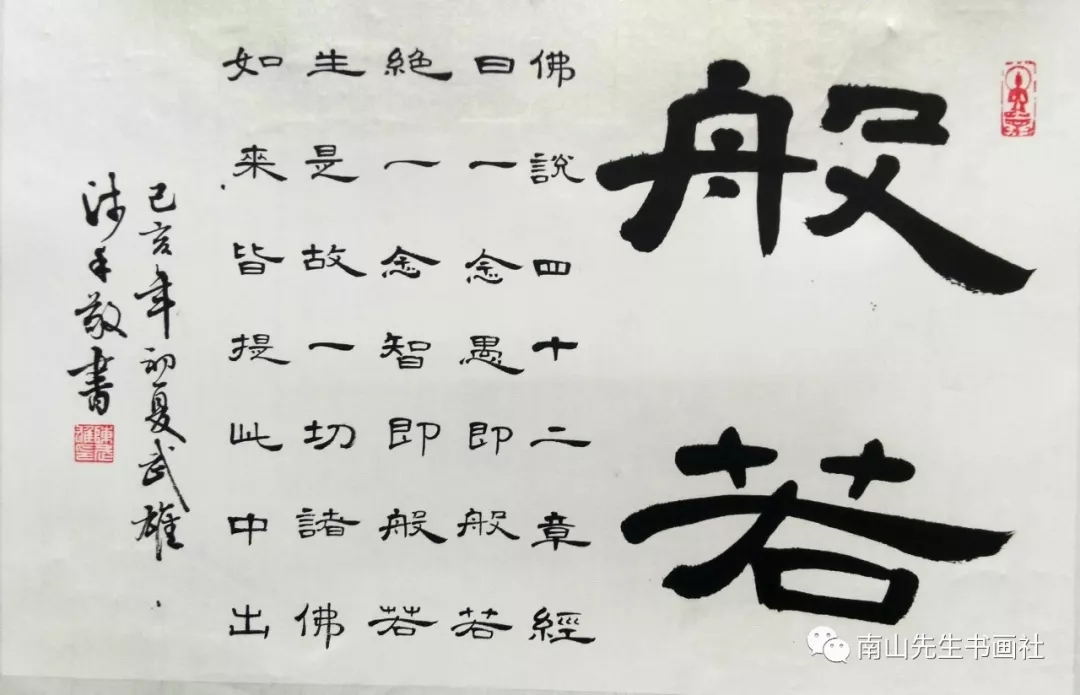 般若
佛說四十二章經
曰一念愚即般若
絕一念智即般若
生是故一切諸佛
如來皆提此中出
己亥年初夏武雄
沐手敬書
南山先生书画社